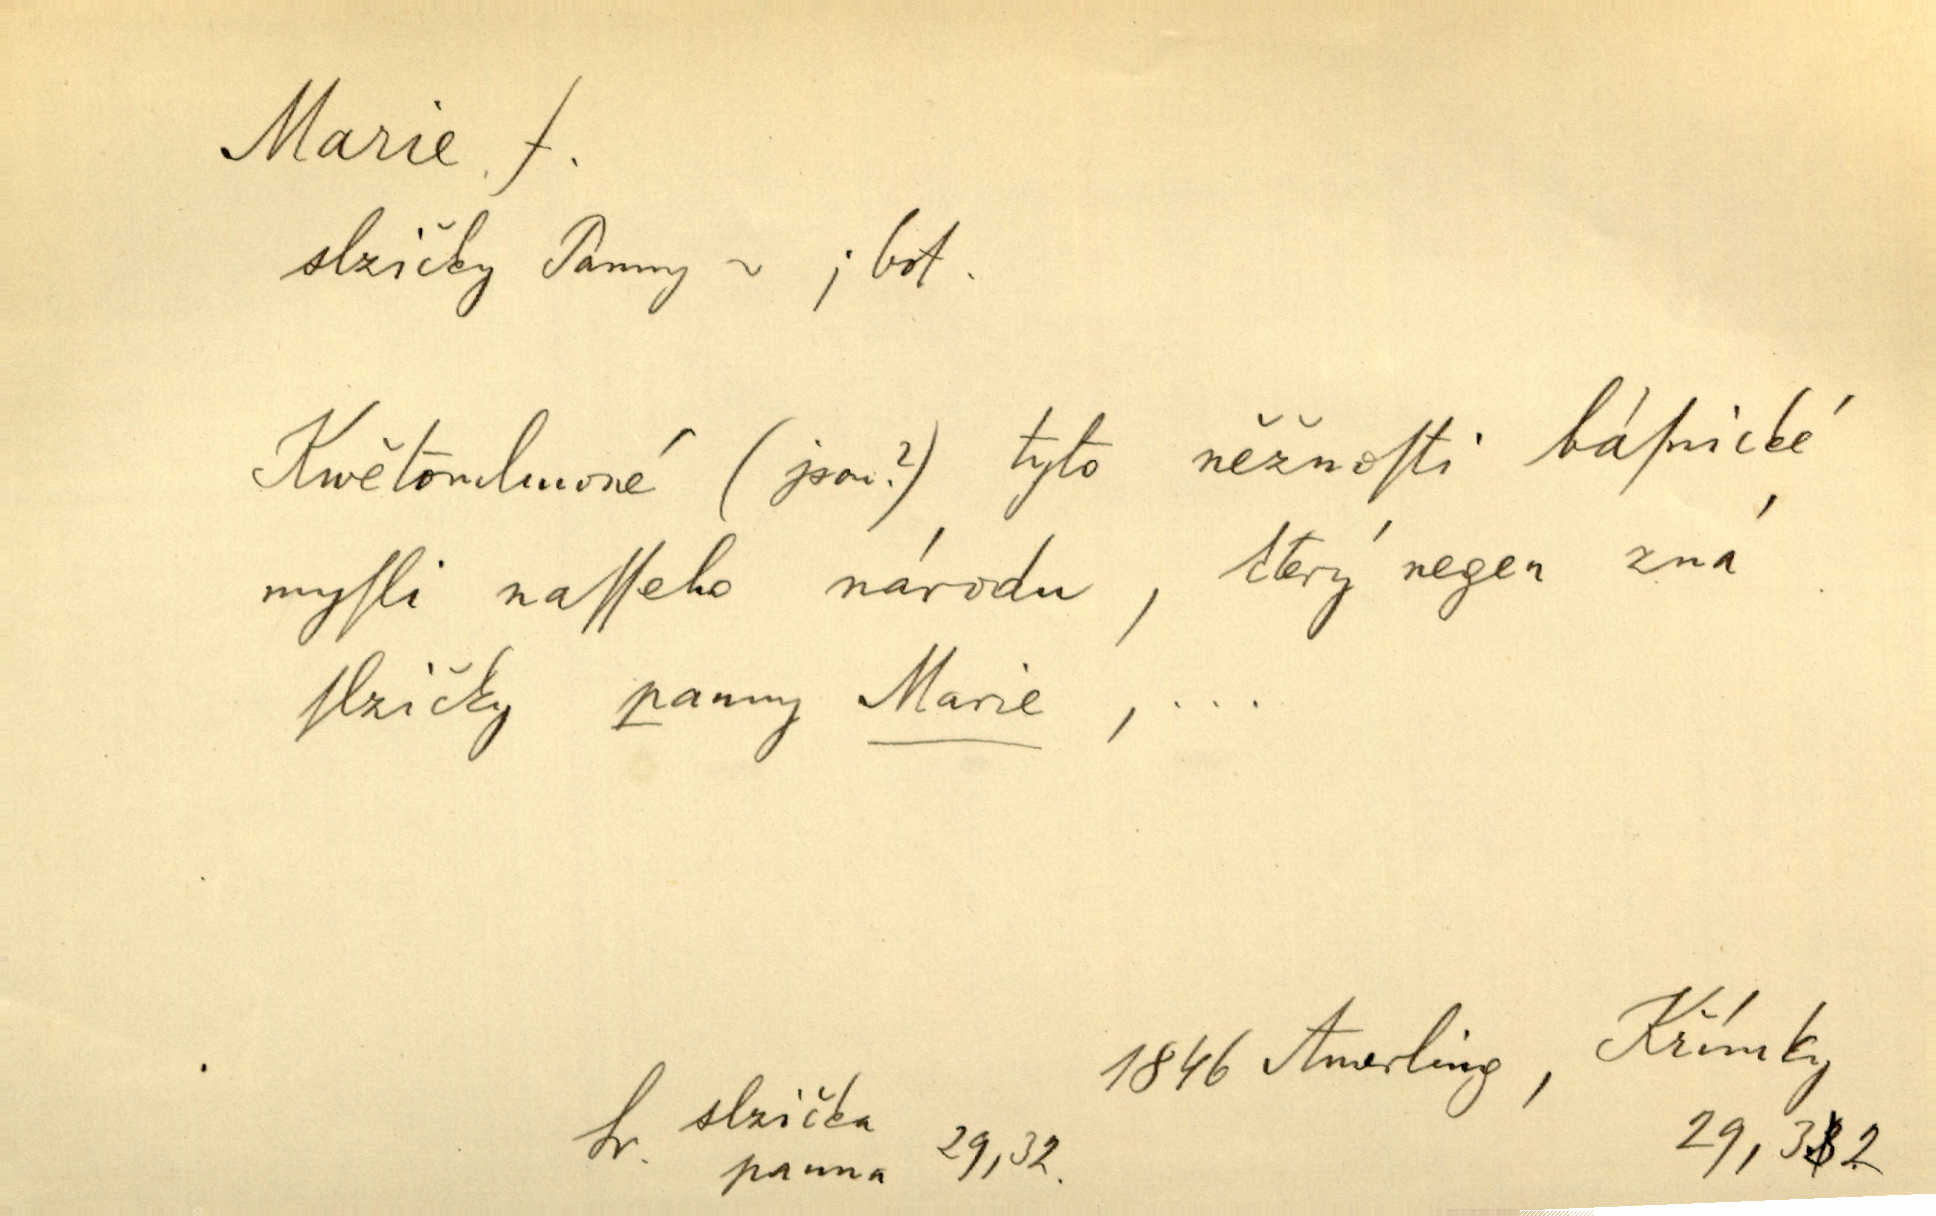 Marie, f.
slzičky Panny ~ ; bot.
Kwětomluwné (jsou?) tyto něžnoſti báſnické
myſli naſſeho národu, který negen zná
ſlzičky panny Marie, ...
1846 Amerling, Křímky
sr. slzička 29,32.
panna
29, 32